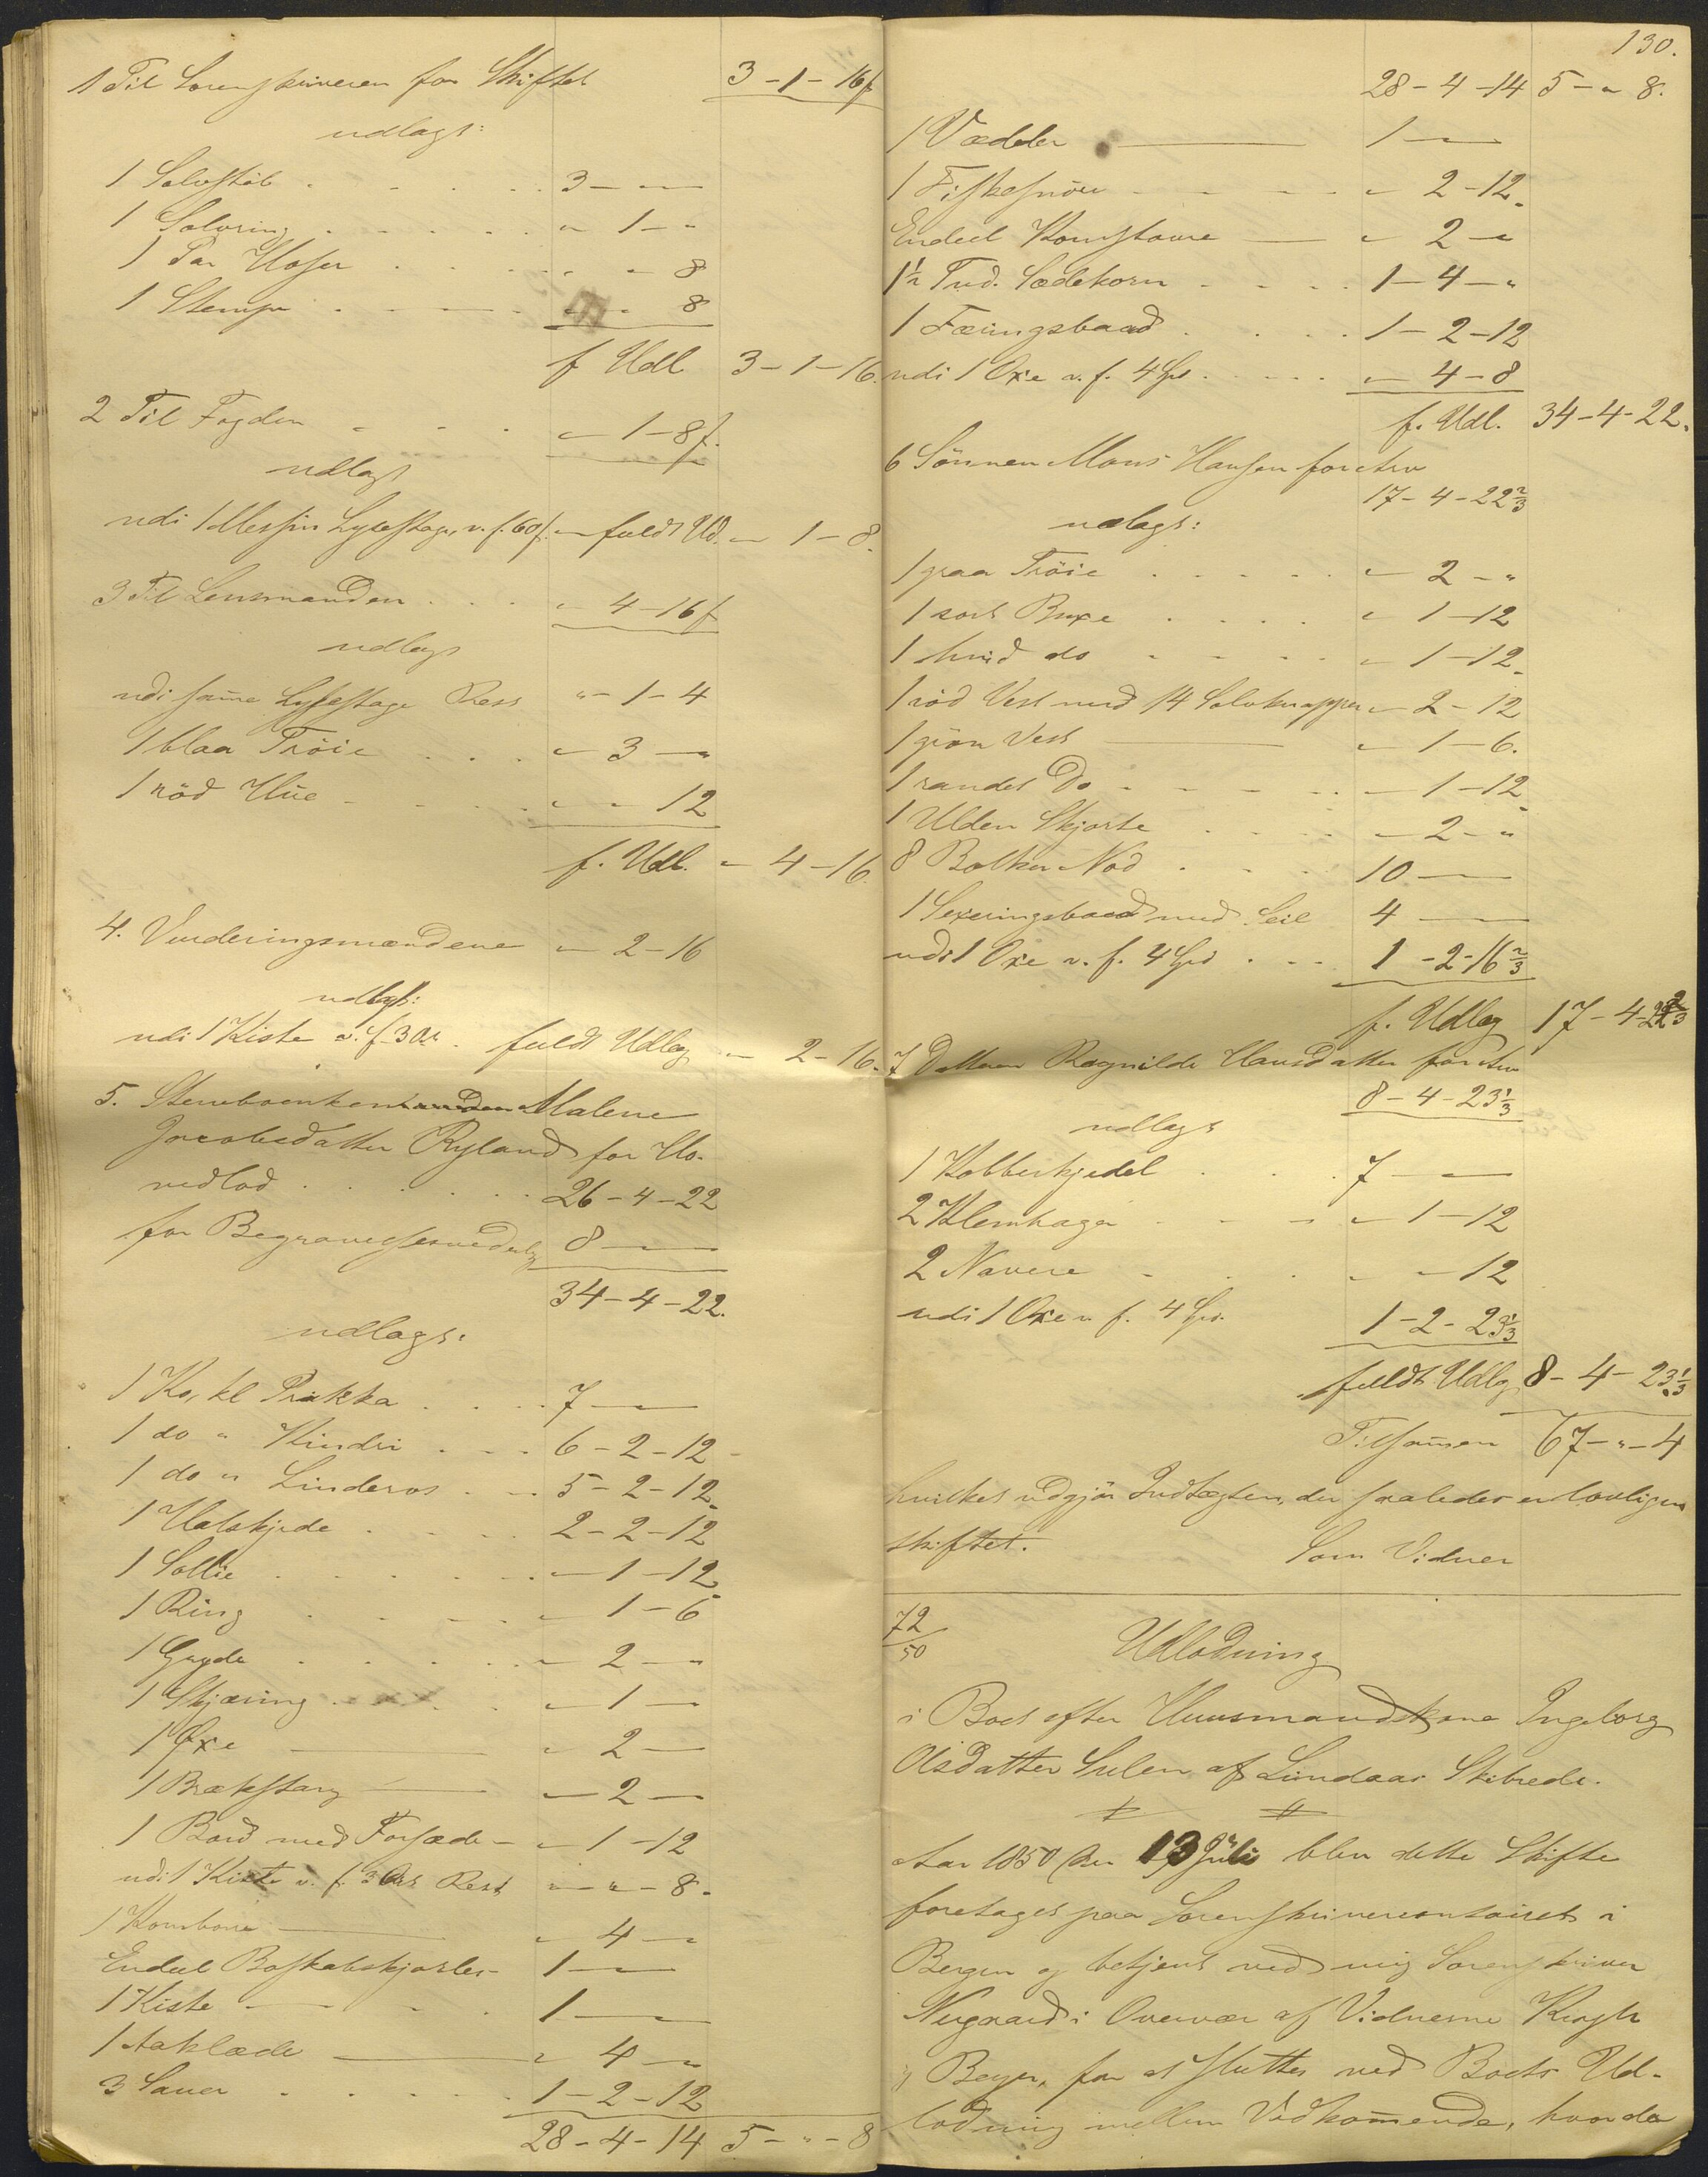 1 Til Sorenskriveren for Skiftet 3-1-16f
udlagt:
1 Sølvstøb 3 - " - "
1 Sølvring " - 1 - "
1 Par Hoser " - " - 8
1 Stemp " - " - 8
f Udl 3-1-16.
2 Til Fogden " - 1-8f.
udlagt
udi 1 Messin Lysestage, v. f. 60f. fuldt Ud. " - 1-8.
3 Til Lensmanden " - 4-16f
udlagt
udi same Lysestage Rest " - 1-4
1 blaa Trøie " - 3 - "
1 rød Hue " - " 12
f. Udl. " - 4-16
4. Vurderingsmændene " - 2-16
udlagt:
udi 1 Kiste v. f. 3 Ort. fuldt Udlæg " - 2-16.
5. Sterboenken Malene
Jacobsdatter Ryland for Ho-
vedlod 26-4-22
for Begravelsesvederlg 8 - "
34-4-22.
udlagt:
1 Ko, kl Prikka 7 - "
1 do " Kindri 6-2-12
1 do " Linderos 5-2-12
1 Halskjede 2-2-12
1 Søllie " - 1-12
1 Ring " - 1-6
1 Gryde " - 2 - "
1 Skjæring " - 1 -
1 Øxe " - 2 -
1 Brækstang " - 2 -
1 Bord med Forsæde " - 1-12
udi 1 Kiste v. f. 3 Ort Rest " - " - 8.
1 Kornbøre " - 4 - "
Endeel Boskabskjørler 1 -
1 Kiste 1 -
1 Aaklæde " - 4 - "
3 Sauer 1-2-12
28-4-14 5 - " - 8
130.
28-4-14 5 - " 8.
1 Vædder 1 -
1 Fiskesnøre " 2-12
Endeel Kornstaure " 2 - "
1½ Tnd. Sædekorn 1-4 - "
1 Færingsbaad 1-2-12
udi 1 Oxe v. f. 4 Spd " - 4-8
f. Udl. 34-4-22.
6 Sönnen Mons Hansen for Arv
17-4-22⅔
udlagt:
1 graa Trøie " - 2 - "
1 sort Buxe " - 1-12
1 hvid do " - 1-12
1 rød Vest med 14 Sølvknapper " - 2-12
1 grøn Vest " - 1-6.
1 randet Do " - 1-12
1 Ulden Skjorte " - 2 - "
8 Bolker Nod 10 -
1 Sexeringsbaad med Seil 4 -
udi 1 Oxe v. f. 4 Spd 1-2-16⅔
f. Udlæg 17-4-22⅔
7 Datteren Ragnilde Hansdatter for Arv
8-4-23⅓
udlagt
1 Kobberkjedel 7 -
2 Klemhager " - 1-12
2 Navere " - " 12
udi 1 Oxe v. f. 4 Spd. 1-2-23⅓
fuldt Udlg 8-4-23⅓
Tilsamen 67 - " - 4
hvilket udgjør Indtægten, der saaledes er lovligen
skiftet. Som Vidner
72/50 Udlodning
i Boet efter Huusmandskone Ingeborg
Olsdatter Sulen af Lindaas Skibrede.
Aar 1850 den 13 Juli blev dette Skifte
foretaget paa Sorenskrivercontoiret i
Bergen og betjent ved mig Sorenskriver
Nygaard i Overvær af Vidnerne Krogh
og Beyer, for at sluttes ved Boets Ud-
lodning mellem Vedkomende, hvorda